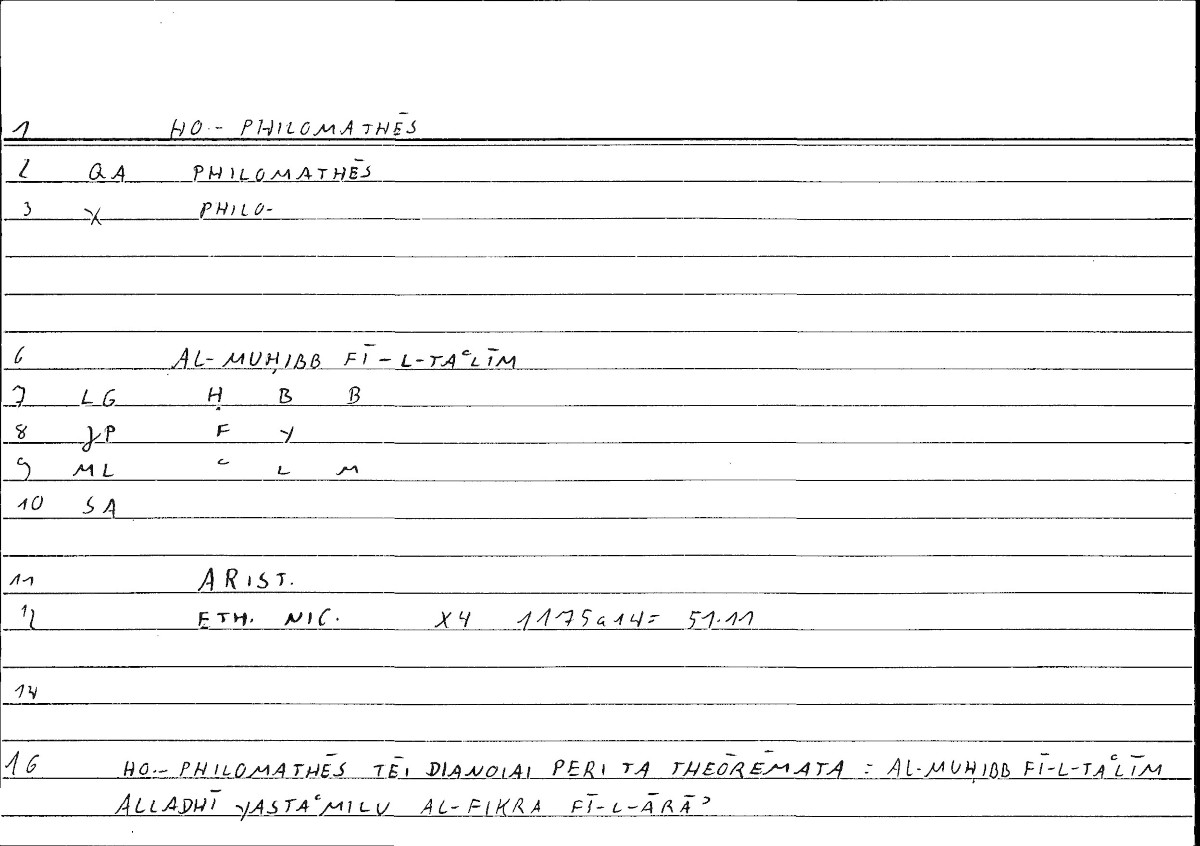 1 HO.- PHILOMATHĒS
2 QA PHILOMATHĒS
3 X PHILO-
6 AL-MUḤIBB FĪ-L-TAᶜLĪM
7 LG Ḥ B B
8 JP F Y
9 ML ᶜ L M
10 SA
11 ARIST.
12 ETH. NIC. X4 1175a14= 51.11
14
16 HO.- PHILOMATHĒS TĒI DIANOIAI PERI TA THEŌRĒMATA : AL-MUḤIBB FĪ-L-TAᶜLĪM
ALLADHĪ YASTAᶜMILU AL-FIKRA FĪ-L-ĀRĀʾ